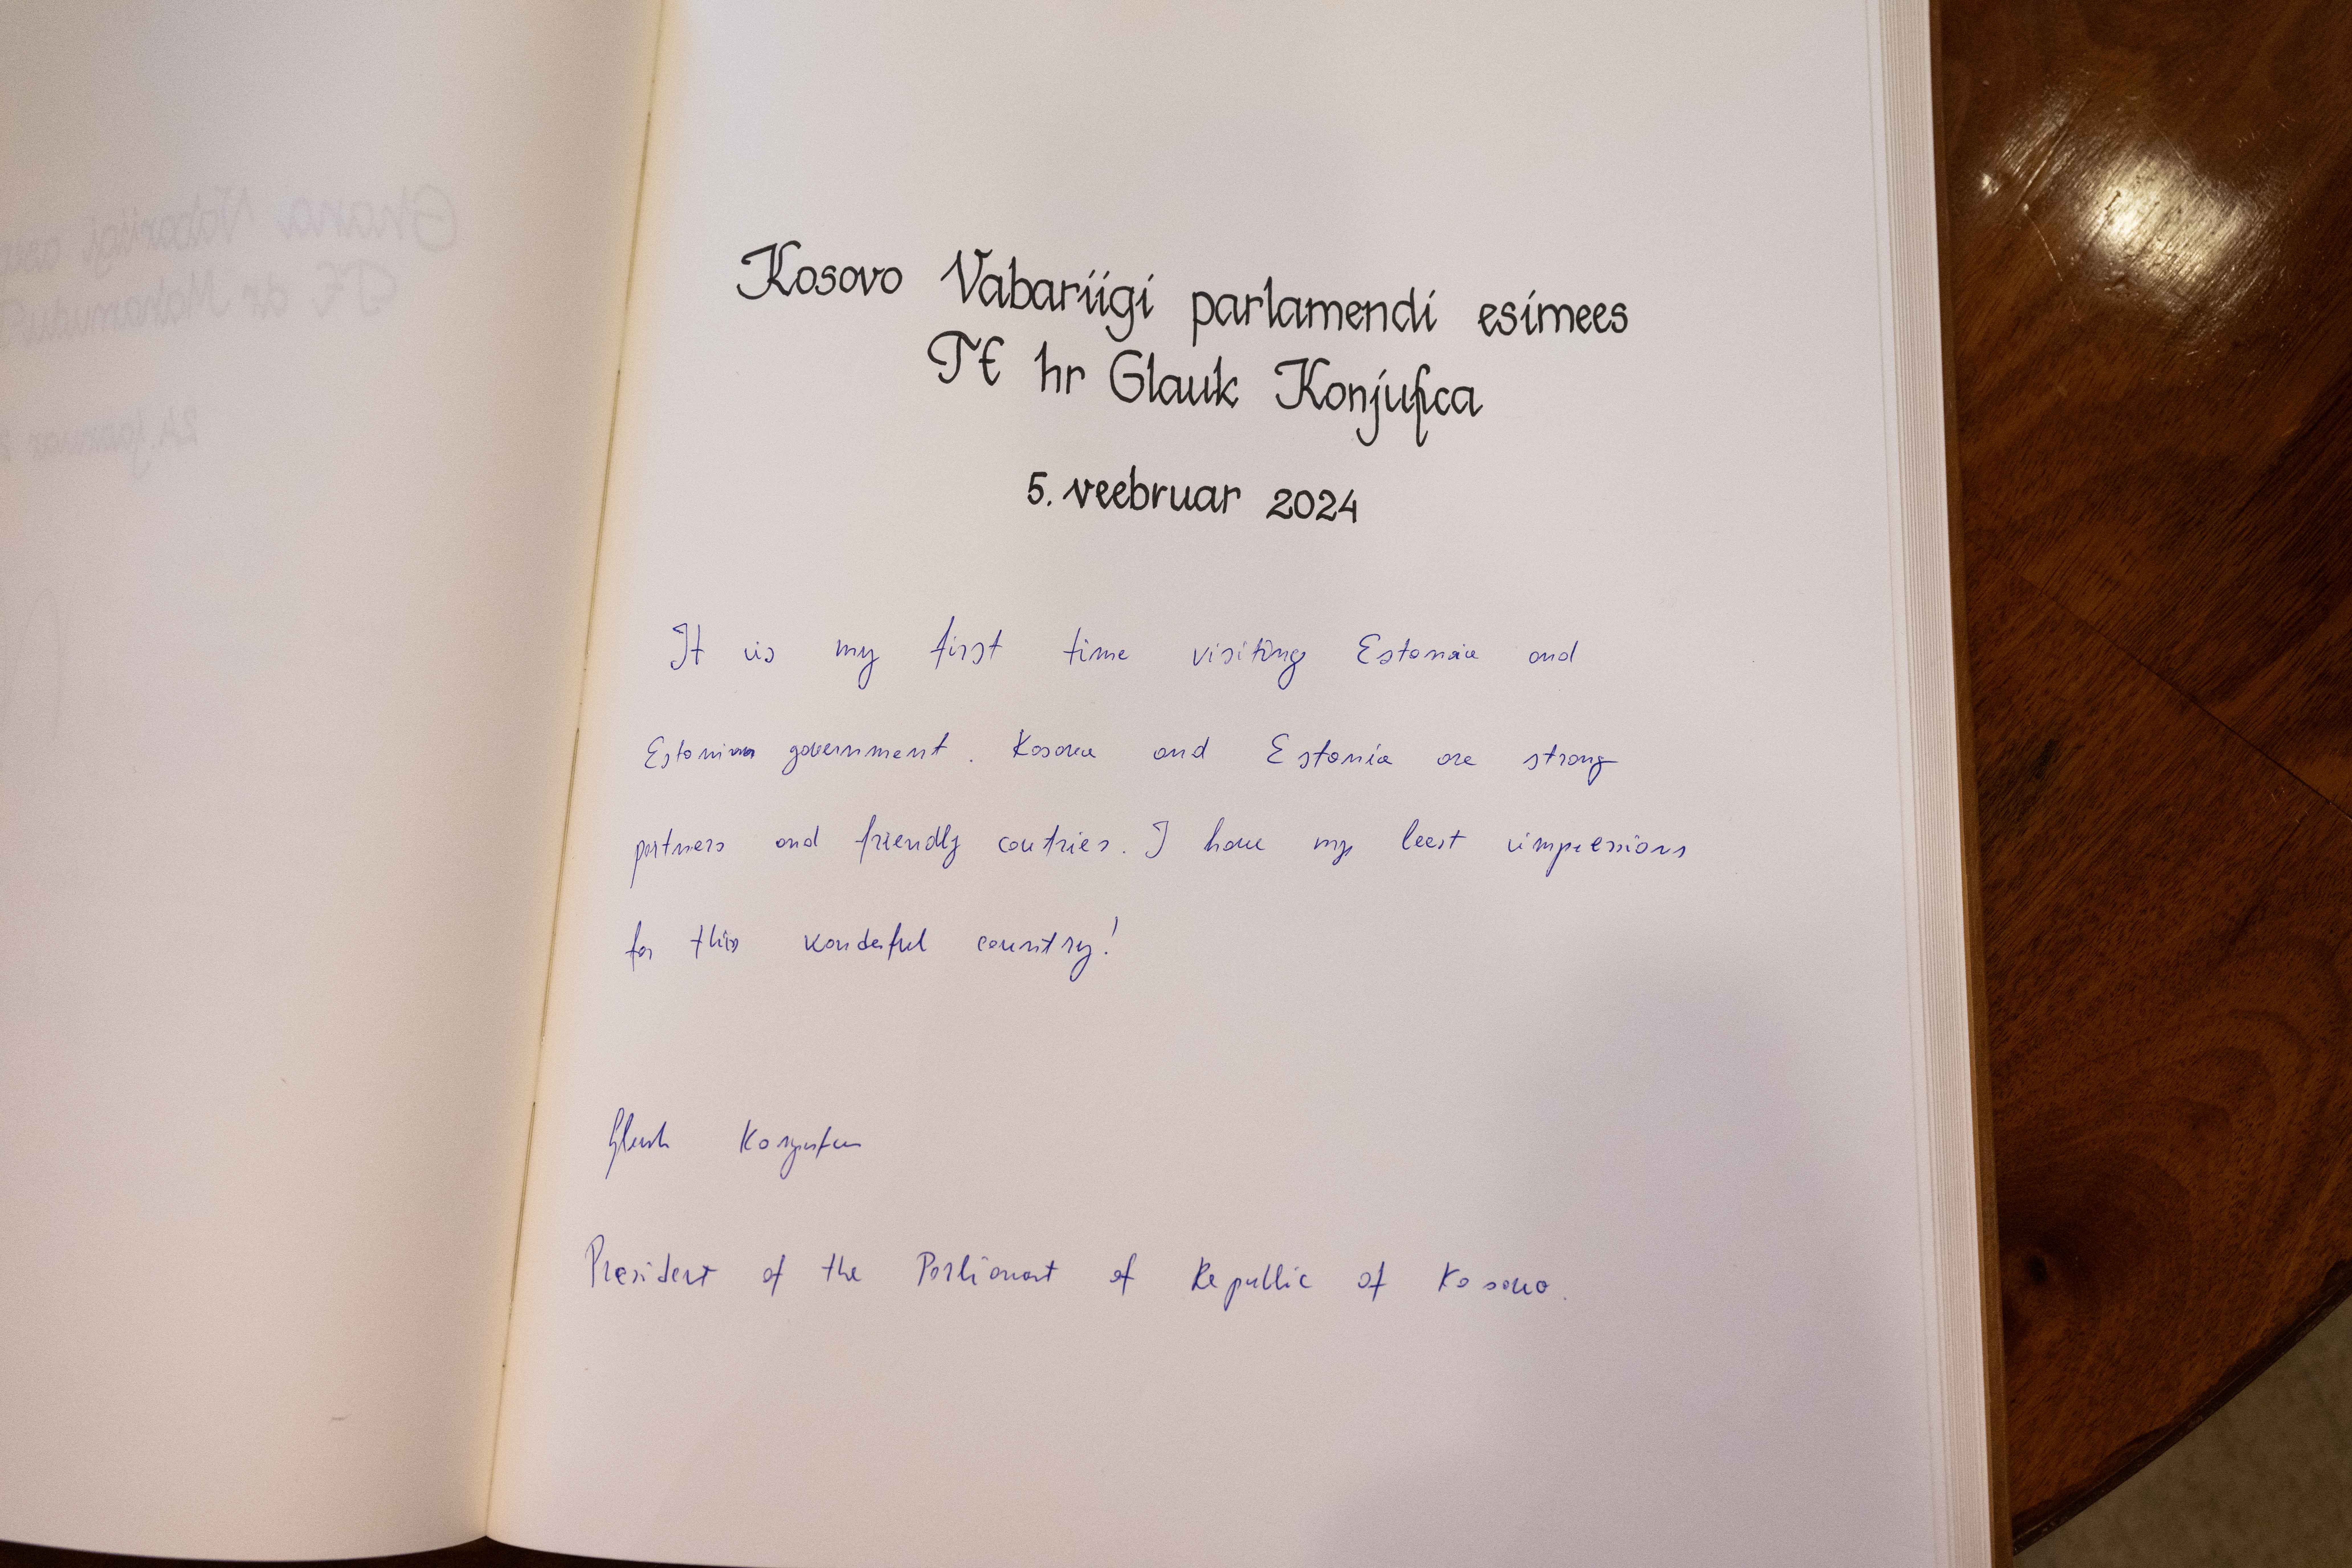 Kosovo Vabariigi parlamendi esimees
TE hr Glauk Konjufca
5. veebruar 2024
It is my first time visiting Estonia and
Estonian government. Kosova and Estonia are strong
partners and friendly coutries. I have my best impressions
for this wonderful country!
Glauk Konjufca
President of the Parliament of Republic of Kosovo.